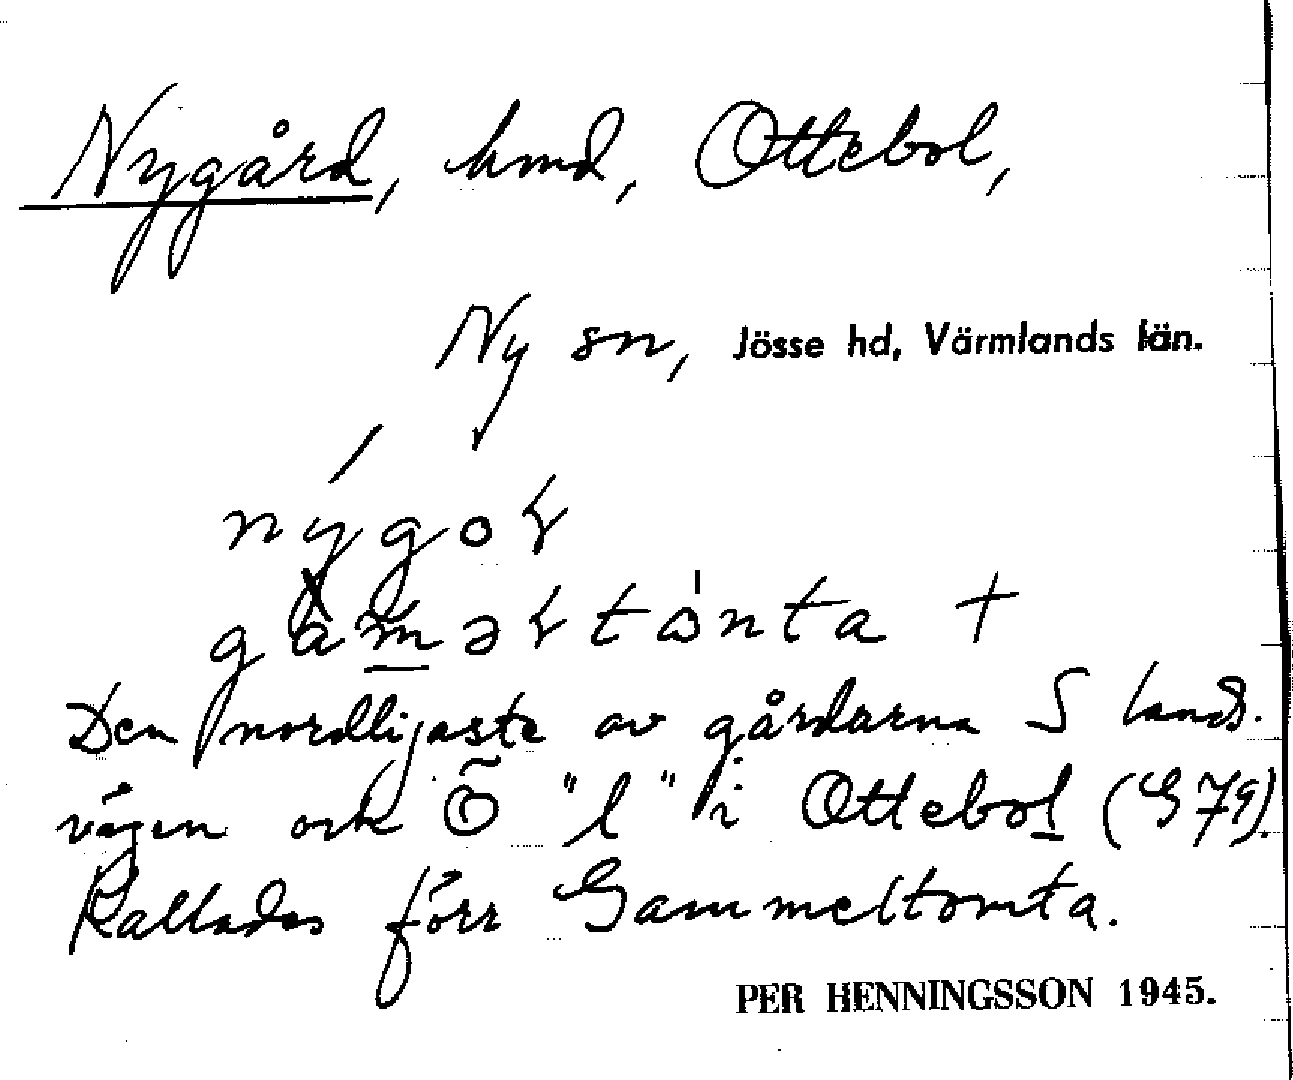 Nygård, hmd, Ottebol,
Ny sn, Jösse hd, Värmlands län.
nýgoɫ
gàməɫtònta +
Den nordligaste av gårdarna S lands-
vägen och Ö "l" i Ottebol (G 79).
Kallades förr Gammeltomta.
PER HENNINGSSON 1945.